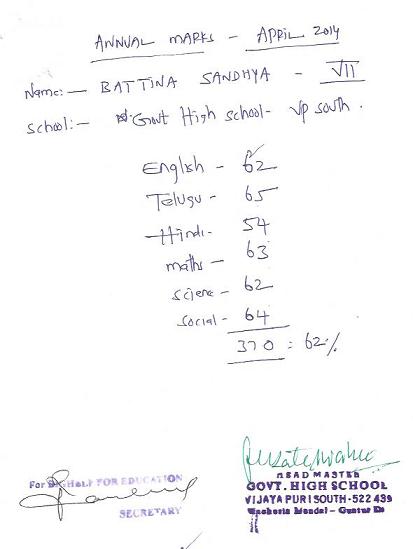 ANNUAL MARKS - APRIL 2014
Name:- BATTINA SANDHYA - VII
School:- Govt High school- VP South.
English - 62
Telugu - 65
Hindi - 54
maths - 63
science - 62
social - 64
370 = 62%
For HELP FOR EDUCATION
SECRETARY
HEAD MASTER
GOVT. HIGH SCHOOL
VIJAYA PURI SOUTH-522 439
Macherla Mandal - Guntur Dt